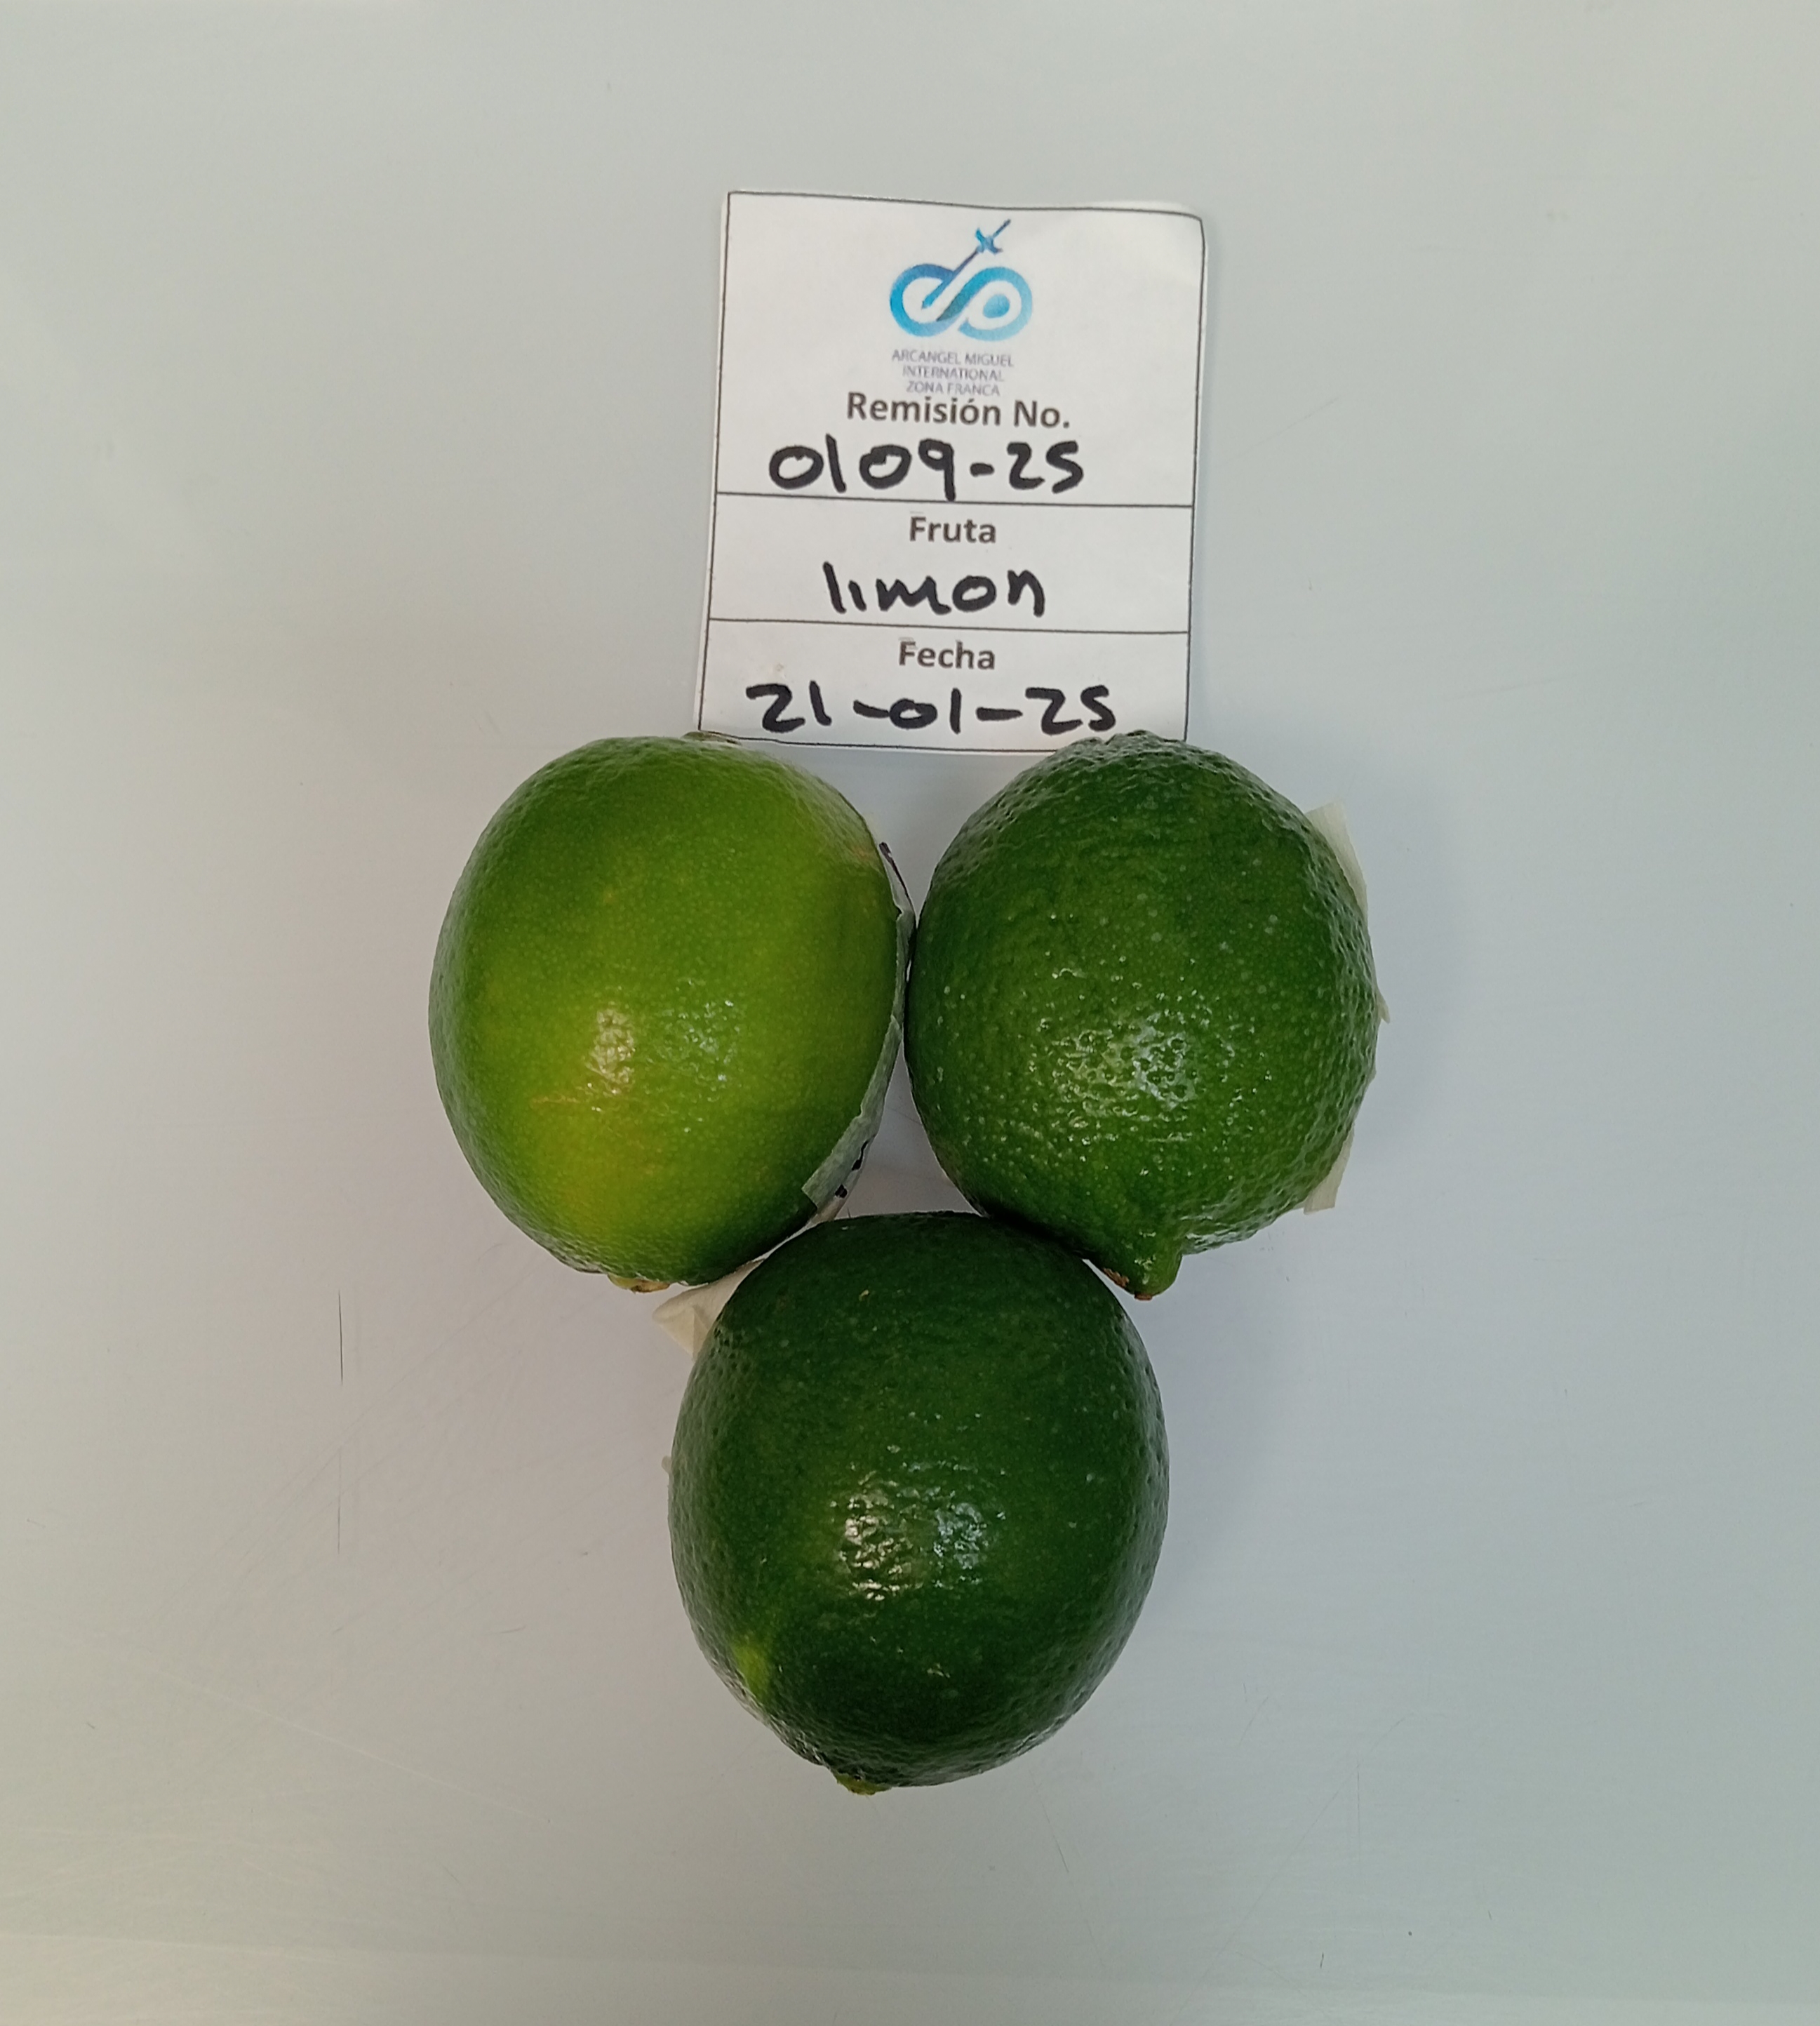 ARCANGEL MIGUEL
INTERNATIONAL
ZONA FRANCA
Remisión No.
0109-25
Fruta
limon
Fecha
21-01-25